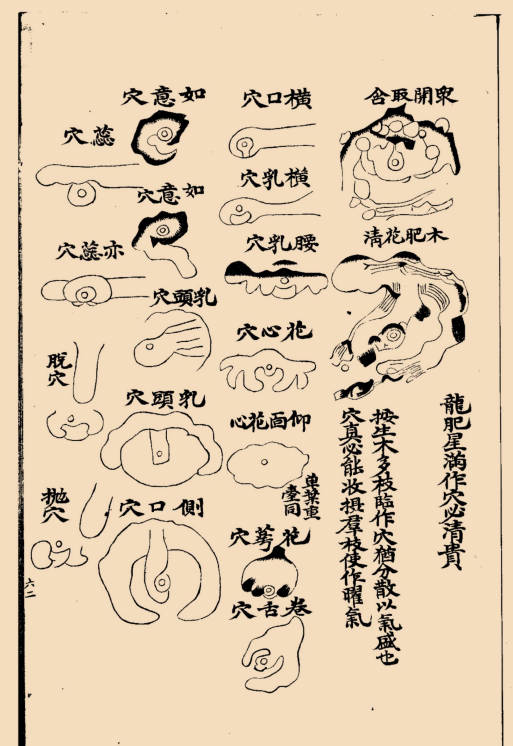 龍肥星滿作穴必清貴
按生木多枝臨作穴猶分散以氣盛也
穴真必能收拱羣枝使作曜氣
眾開取含
木肥花清
橫口穴
橫乳穴
腰乳穴
花心穴
仰面花心
單葉重臺同
花萼穴
卷舌穴
如意穴
如意穴
乳頭穴
乳頭穴
側口穴
蕊穴
亦蕊穴
脫穴
拋穴
六二